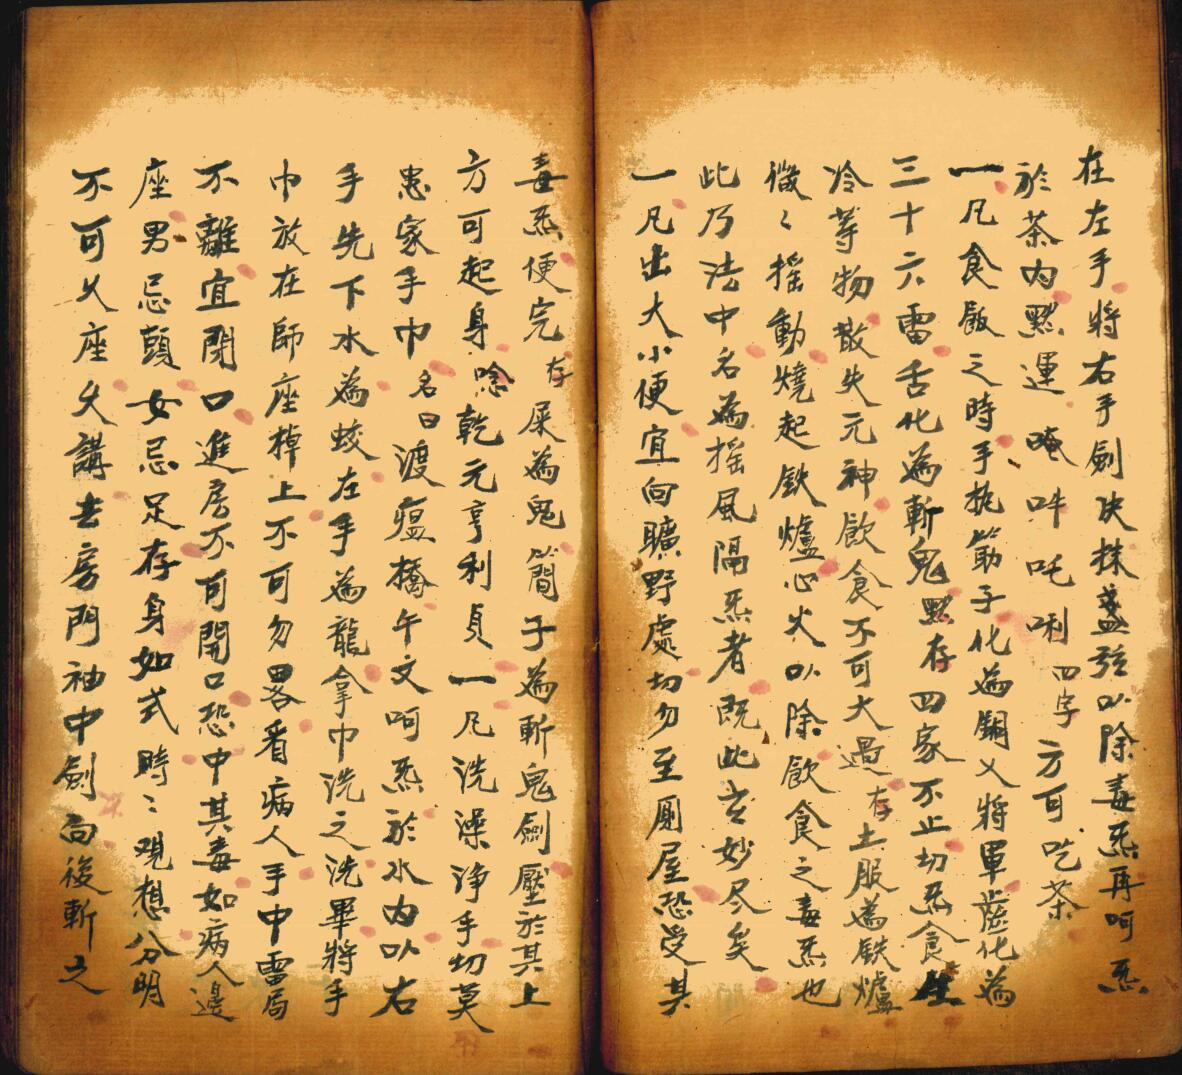 在左手將右手劍决抹盞弦以除毒炁再呵炁
於茶內黙運唵吽吒唎四字方可吃茶
一凡食飯之時手執筯子化為關义將軍齒化為
三十六雷舌化為斬鬼黙存四家不止切炁食生
冷等物散失元神飲食不可大過存土服為鉄爐
微〻搖動燒起鉄爐心火以除飲食之毒炁也
此乃法中名為搖風隔炁者既此玄妙尽矣
一凡出大小便宜向曠野處切勿至厠屋恐受其
毒炁便完存屎為鬼簡子為斬鬼劍壓於其上
方可起身唸乾元亨利貞一凡洗澡净手切莫
患家手巾名曰渡瘟橋午文呵炁於水內以右
手先下水為蛟左手為龍拿巾洗之洗畢將手
巾放在師座棹上不可勿畧看病人手中雷局
不離宜閉口進房不可開口恐中其毒如病人邊
座男忌頭女忌足存身如式時〻观想分明
不可久座久講去房門袖中劍向後斬之